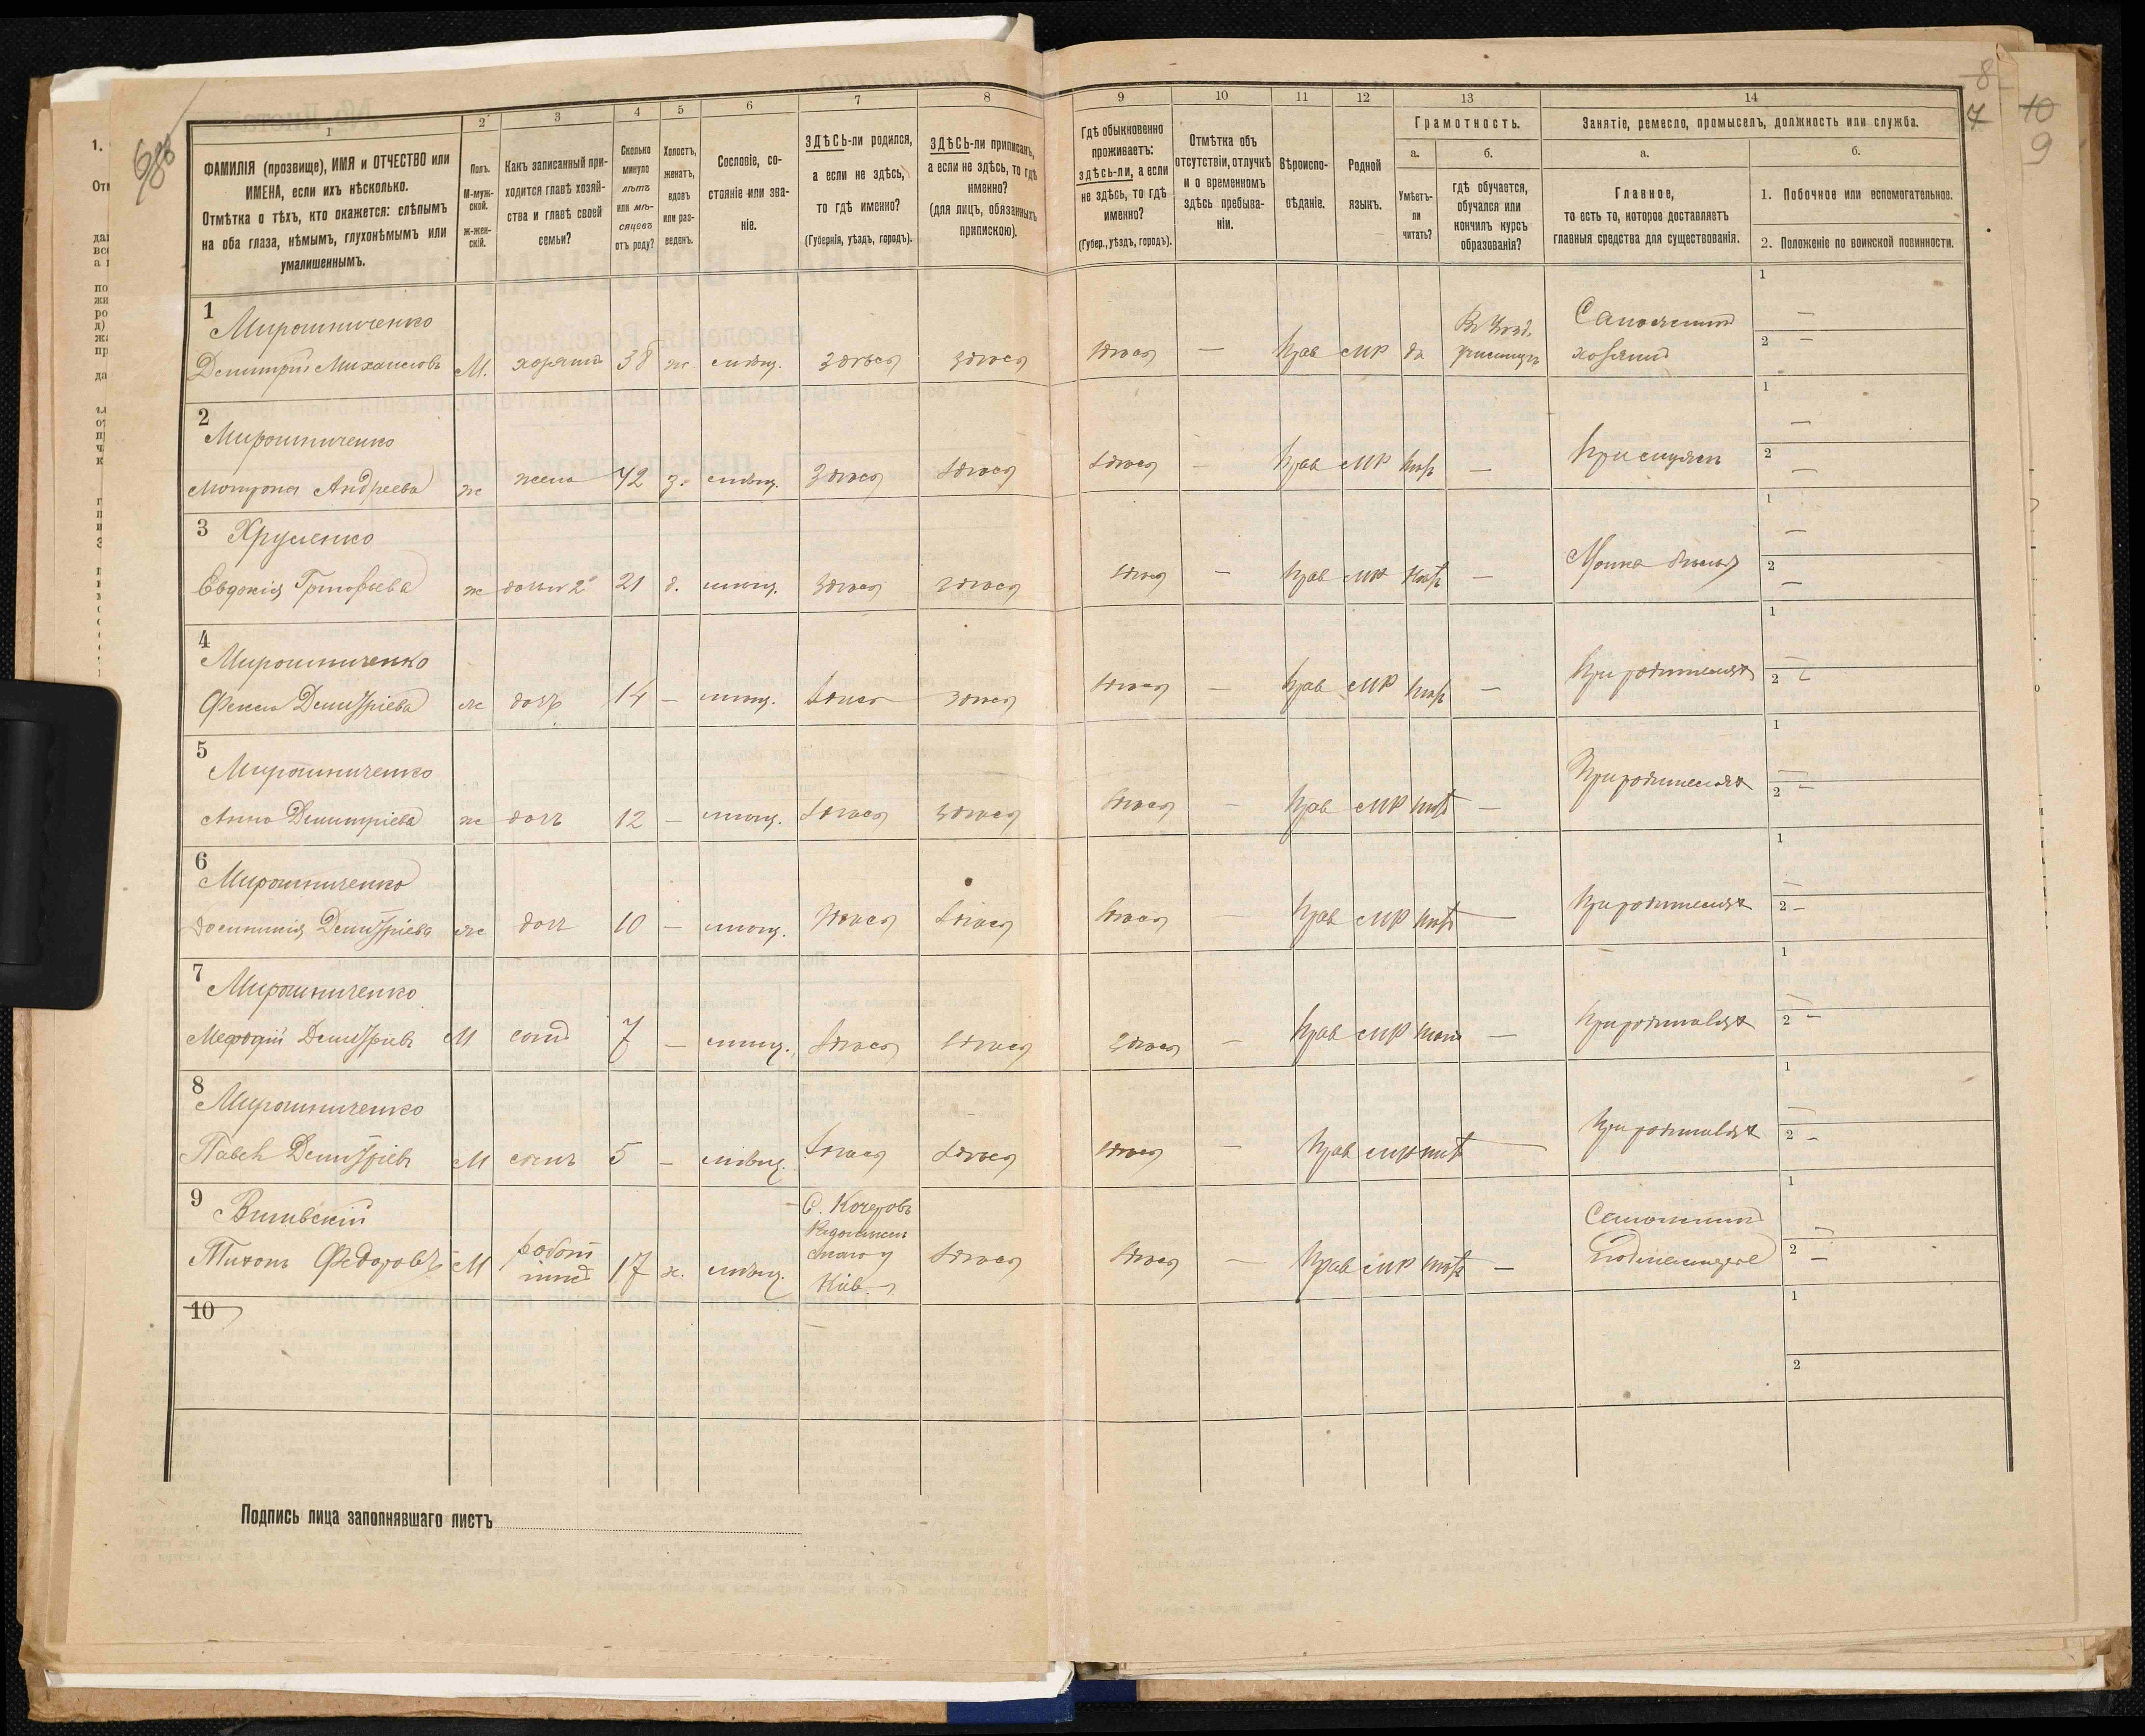 8
7
10
9
1
2
3
4
5
6
7
8
9
10
11
12
13
14
ФАМИЛІЯ (прозвище), ИМЯ и ОТЧЕСТВО или
ИМЕНА, если ихъ нѣсколько.
Отмѣтка о тѣхъ, кто окажется: слѣпымъ
на оба глаза, нѣмымъ, глухонѣмымъ или
умалишеннымъ.
Полъ.
М-муж-
ской.
Ж-жен-
скій.
Какъ записанный при-
ходится главѣ хозяй-
ства и главѣ своей
семьи?
Сколько
минуло
лѣтъ
или мѣ-
сяцевъ
отъ роду?
Холостъ,
женатъ,
вдовъ
или раз-
веденъ.
Сословіе, со-
стояніе или зва-
ніе.
ЗДѢСЬ-ли родился,
а если не здѣсь,
то гдѣ именно?
(Губернія, уѣздъ, городъ).
ЗДѢСЬ-ли приписанъ,
а если не здѣсь, то гдѣ
именно?
(для лицъ, обязанныхъ
припискою).
Гдѣ обыкновенно
проживаетъ:
здѣсь-ли, а если
не здѣсь, то гдѣ
именно?
(Губер., уѣздъ, городъ).
Отмѣтка объ
отсутствіи, отлучкѣ
и о временномъ
здѣсь пребыва-
ніи.
Вѣроиспо-
вѣданіе.
Родной
языкъ.
Грамотность.
а.
Умѣетъ-
ли
читать?
б.
гдѣ обучается,
обучался или
кончилъ курсъ
образованія?
Занятіе, ремесло, промыселъ, должность или служба.
а.
Главное,
то есть то, которое доставляетъ
главныя средства для существованія.
б.
1. Побочное или вспомогательное.
2. Положеніе по воинской повинности.
1
Мирошниченко
Димитрій Михаиловъ М. хозяинъ 38 ж. мѣщ. здѣсь здѣсь здѣсь — прав мр да
училищѣ
Сапожникъ
хозяинъ
1 —
2 —
2
Мирошниченко
Мотрона Андреева ж жена 42 з. мѣщ. здѣсь здѣсь здѣсь — прав мр нѣтъ —
При мужѣ
1 —
2 —
3 Хрущенко
Евдокія Григорьева ж 21 д. мѣщ. здѣсь здѣсь здѣсь — прав мр нѣтъ —
1 —
2 —
4
Мирошниченко
Димитріева ж дочь 14 — мѣщ. здѣсь здѣсь здѣсь — прав мр нѣтъ —
При родителяхъ
1 —
2 —
5
Мирошниченко
Анна Димитріева ж дочь 12 — мѣщ. здѣсь здѣсь здѣсь — прав мр нѣтъ —
При родителяхъ
1 —
2 —
6
Мирошниченко
Димитріева ж дочь 10 — мѣщ. здѣсь здѣсь здѣсь прав мр нѣтъ —
При родителяхъ
1 —
2 —
7
Мирошниченко
Мефодій Димитріевъ М сынъ 7 — мѣщ. здѣсь здѣсь здѣсь — прав мр нѣтъ —
При родителяхъ
1 —
2 —
8
Мирошниченко
Павелъ Димитріевъ М сынъ 5 — мѣщ. здѣсь здѣсь здѣсь — прав мр нѣтъ —
При родителяхъ
1 —
2 —
9
Тихонъ Федоровъ М
17 х. мѣщ.
С. Кочеровъ
Радомысль
скаго у
Кіев.
здѣсь здѣсь — прав мр нѣтъ —
Сапожникъ
1 —
2 —
10
1
2
Подпись лица заполнявшаго листъ